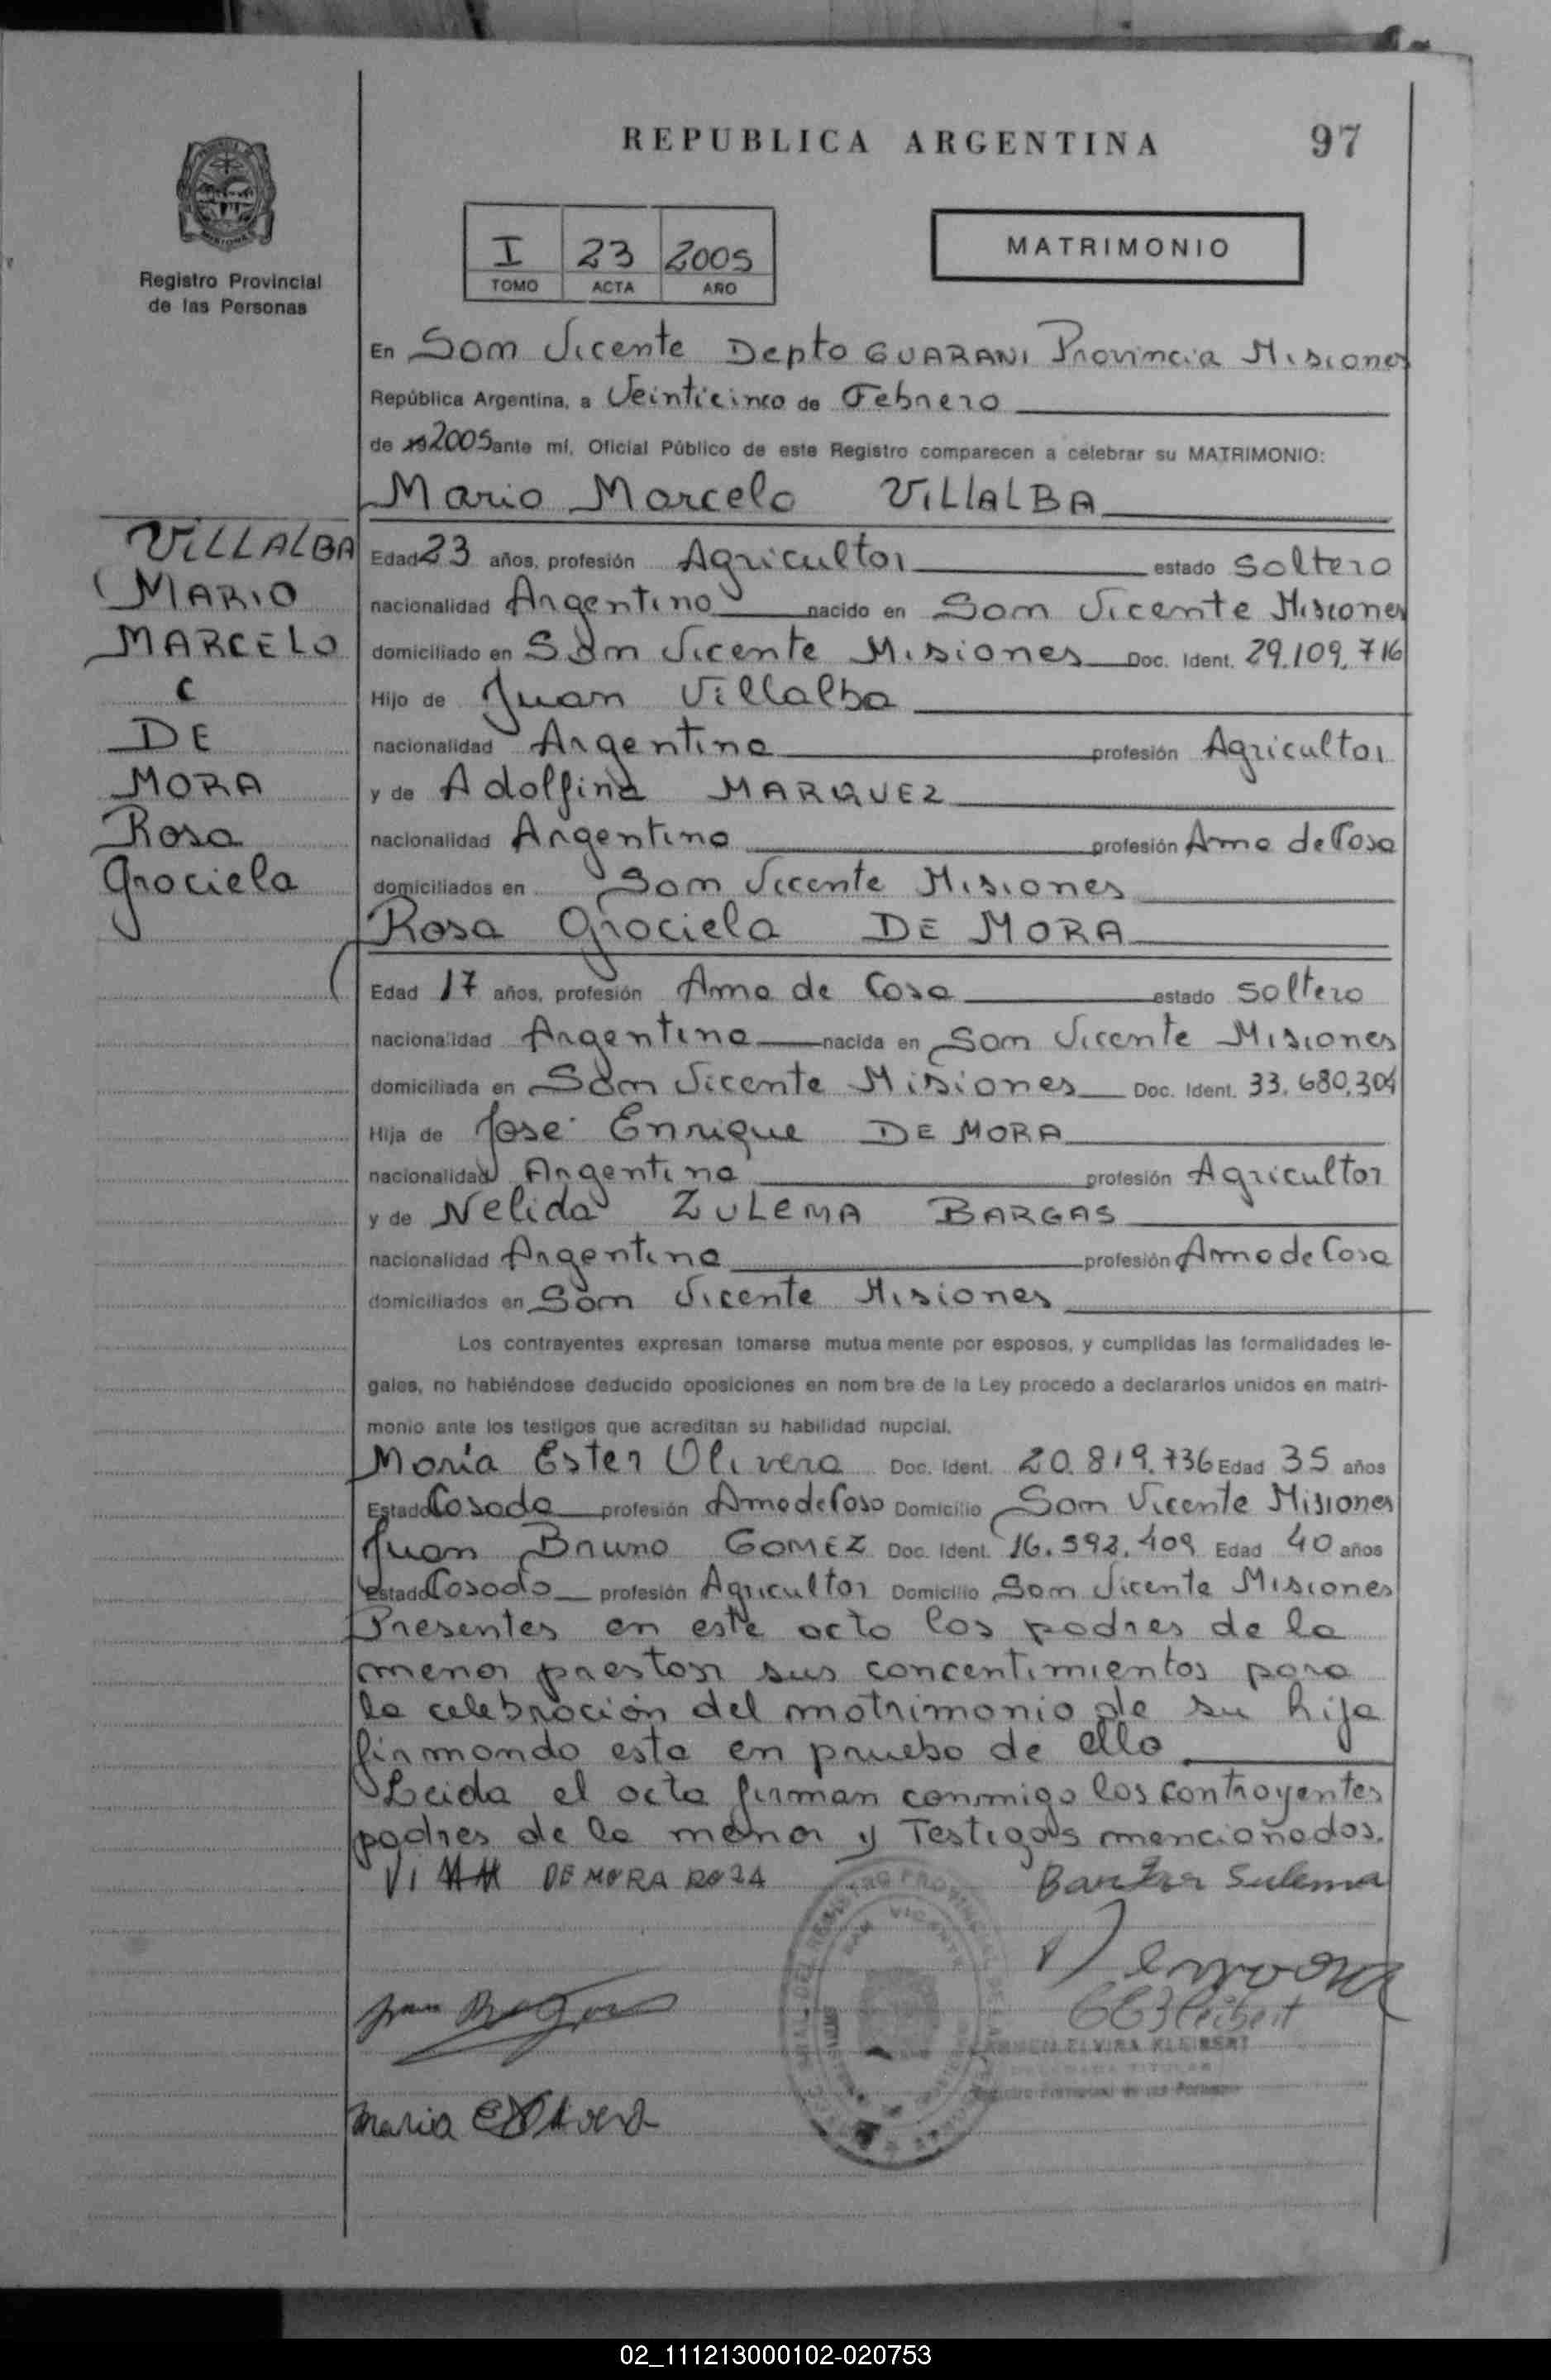 REPUBLICA ARGENTINA
97
Registro Provincial
de las Personas
I 23 2005
TOMO ACTA AÑO
MATRIMONIO
En San Vicente Depto GUARANI Provincia Misiones
República Argentina, a Veinticinco de Febrero
de 19 2005 ante mí, Oficial Público de este Registro comparecen a celebrar su MATRIMONIO:
Mario Marcelo VILLALBA
VILLALBA
MARIO
MARCELO
C
DE
MORA
Rosa
Graciela
Edad 23 años, profesión Agricultor estado Soltero
nacionalidad Argentino nacido en San Vicente Misiones
domiciliado en San Vicente Misiones Doc. Ident. 29.109.716
Hijo de Juan Villalba
nacionalidad Argentina profesión Agricultor
y de Adolfina MARQUEZ
nacionalidad Argentina profesión Ama de Casa
domiciliados en San Vicente Misiones
Rosa Graciela DE MORA
Edad 17 años, profesión Ama de Casa estado Soltera
nacionalidad Argentina nacida en San Vicente Misiones
domiciliada en San Vicente Misiones Doc. Ident. 33.680.304
Hija de Jose Enrique DE MORA
nacionalidad Argentina profesión Agricultor
y de Nelida ZULEMA BARGAS
nacionalidad Argentina profesión Ama de Casa
domiciliados en San Vicente Misiones
Los contrayentes expresan tomarse mutua mente por esposos, y cumplidas las formalidades le-
gales, no habiéndose deducido oposiciones en nom bre de la Ley procedo a declararlos unidos en matri-
monio ante los testigos que acreditan su habilidad nupcial.
María Ester Olivera Doc. Ident. 20.819.736 Edad 35 años
Estado Casada profesión Ama de Casa Domicilio San Vicente Misiones
Juan Bruno GOMEZ Doc. Ident. 16.592.409 Edad 40 años
Estado Casado profesión Agricultor Domicilio San Vicente Misiones
Presentes en este acto los padres de la
menor prestan sus concentimientos para
la celebración del matrimonio de su hija
firmando esta en prueba de ello
Leida el acta firman conmigo los contrayentes
padres de la menor y Testigos mencionados.
DE MORA ROSA
Sulema
Maria
ELVIRA KLEIBERT
TITULAR
02_111213000102-020753